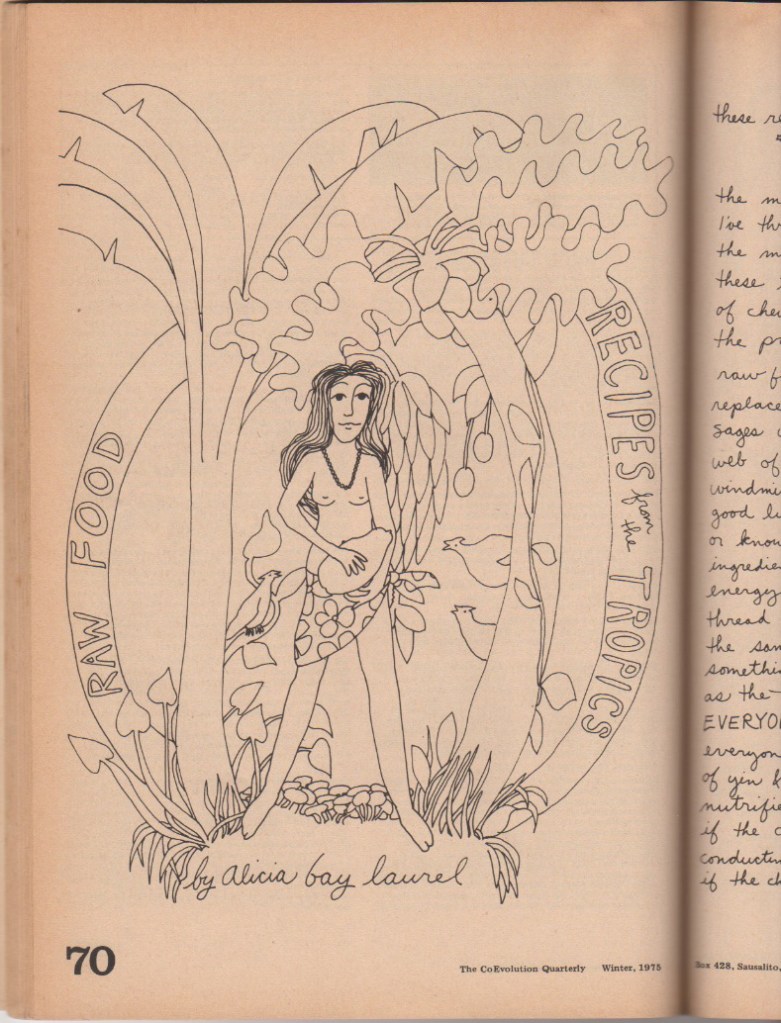 RAW FOOD
RECIPES from the TROPICS
by alicia bay laurel
70
The CoEvolution Quarterly Winter, 1975
these
the
I've
the
these
of
the
raw
replace
sages
web of
windmi
good
or know
ingredie
energy
thread
the
somethi
as the
EVERYO
everyon
of yin
nutrifie
if the
conductin
if the
Box 428, Sausalito,